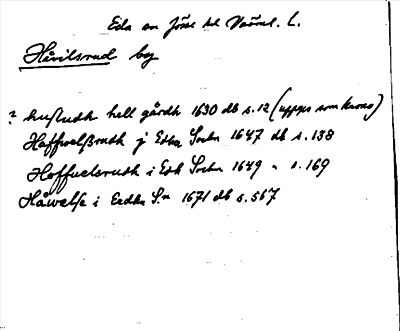 Eda sn Jösse hd Värml. L.
Håvilsrud by
? hußudh hell gårdh 1630 db s. 12 (uppges som krono)
Haffwelßrudh j Edha Sochn 1647 db s. 138
Hoffuelsrudh i Edh Sochn 1649 " s. 169
Håwelse i Eedha S:n 1671 db s. 567